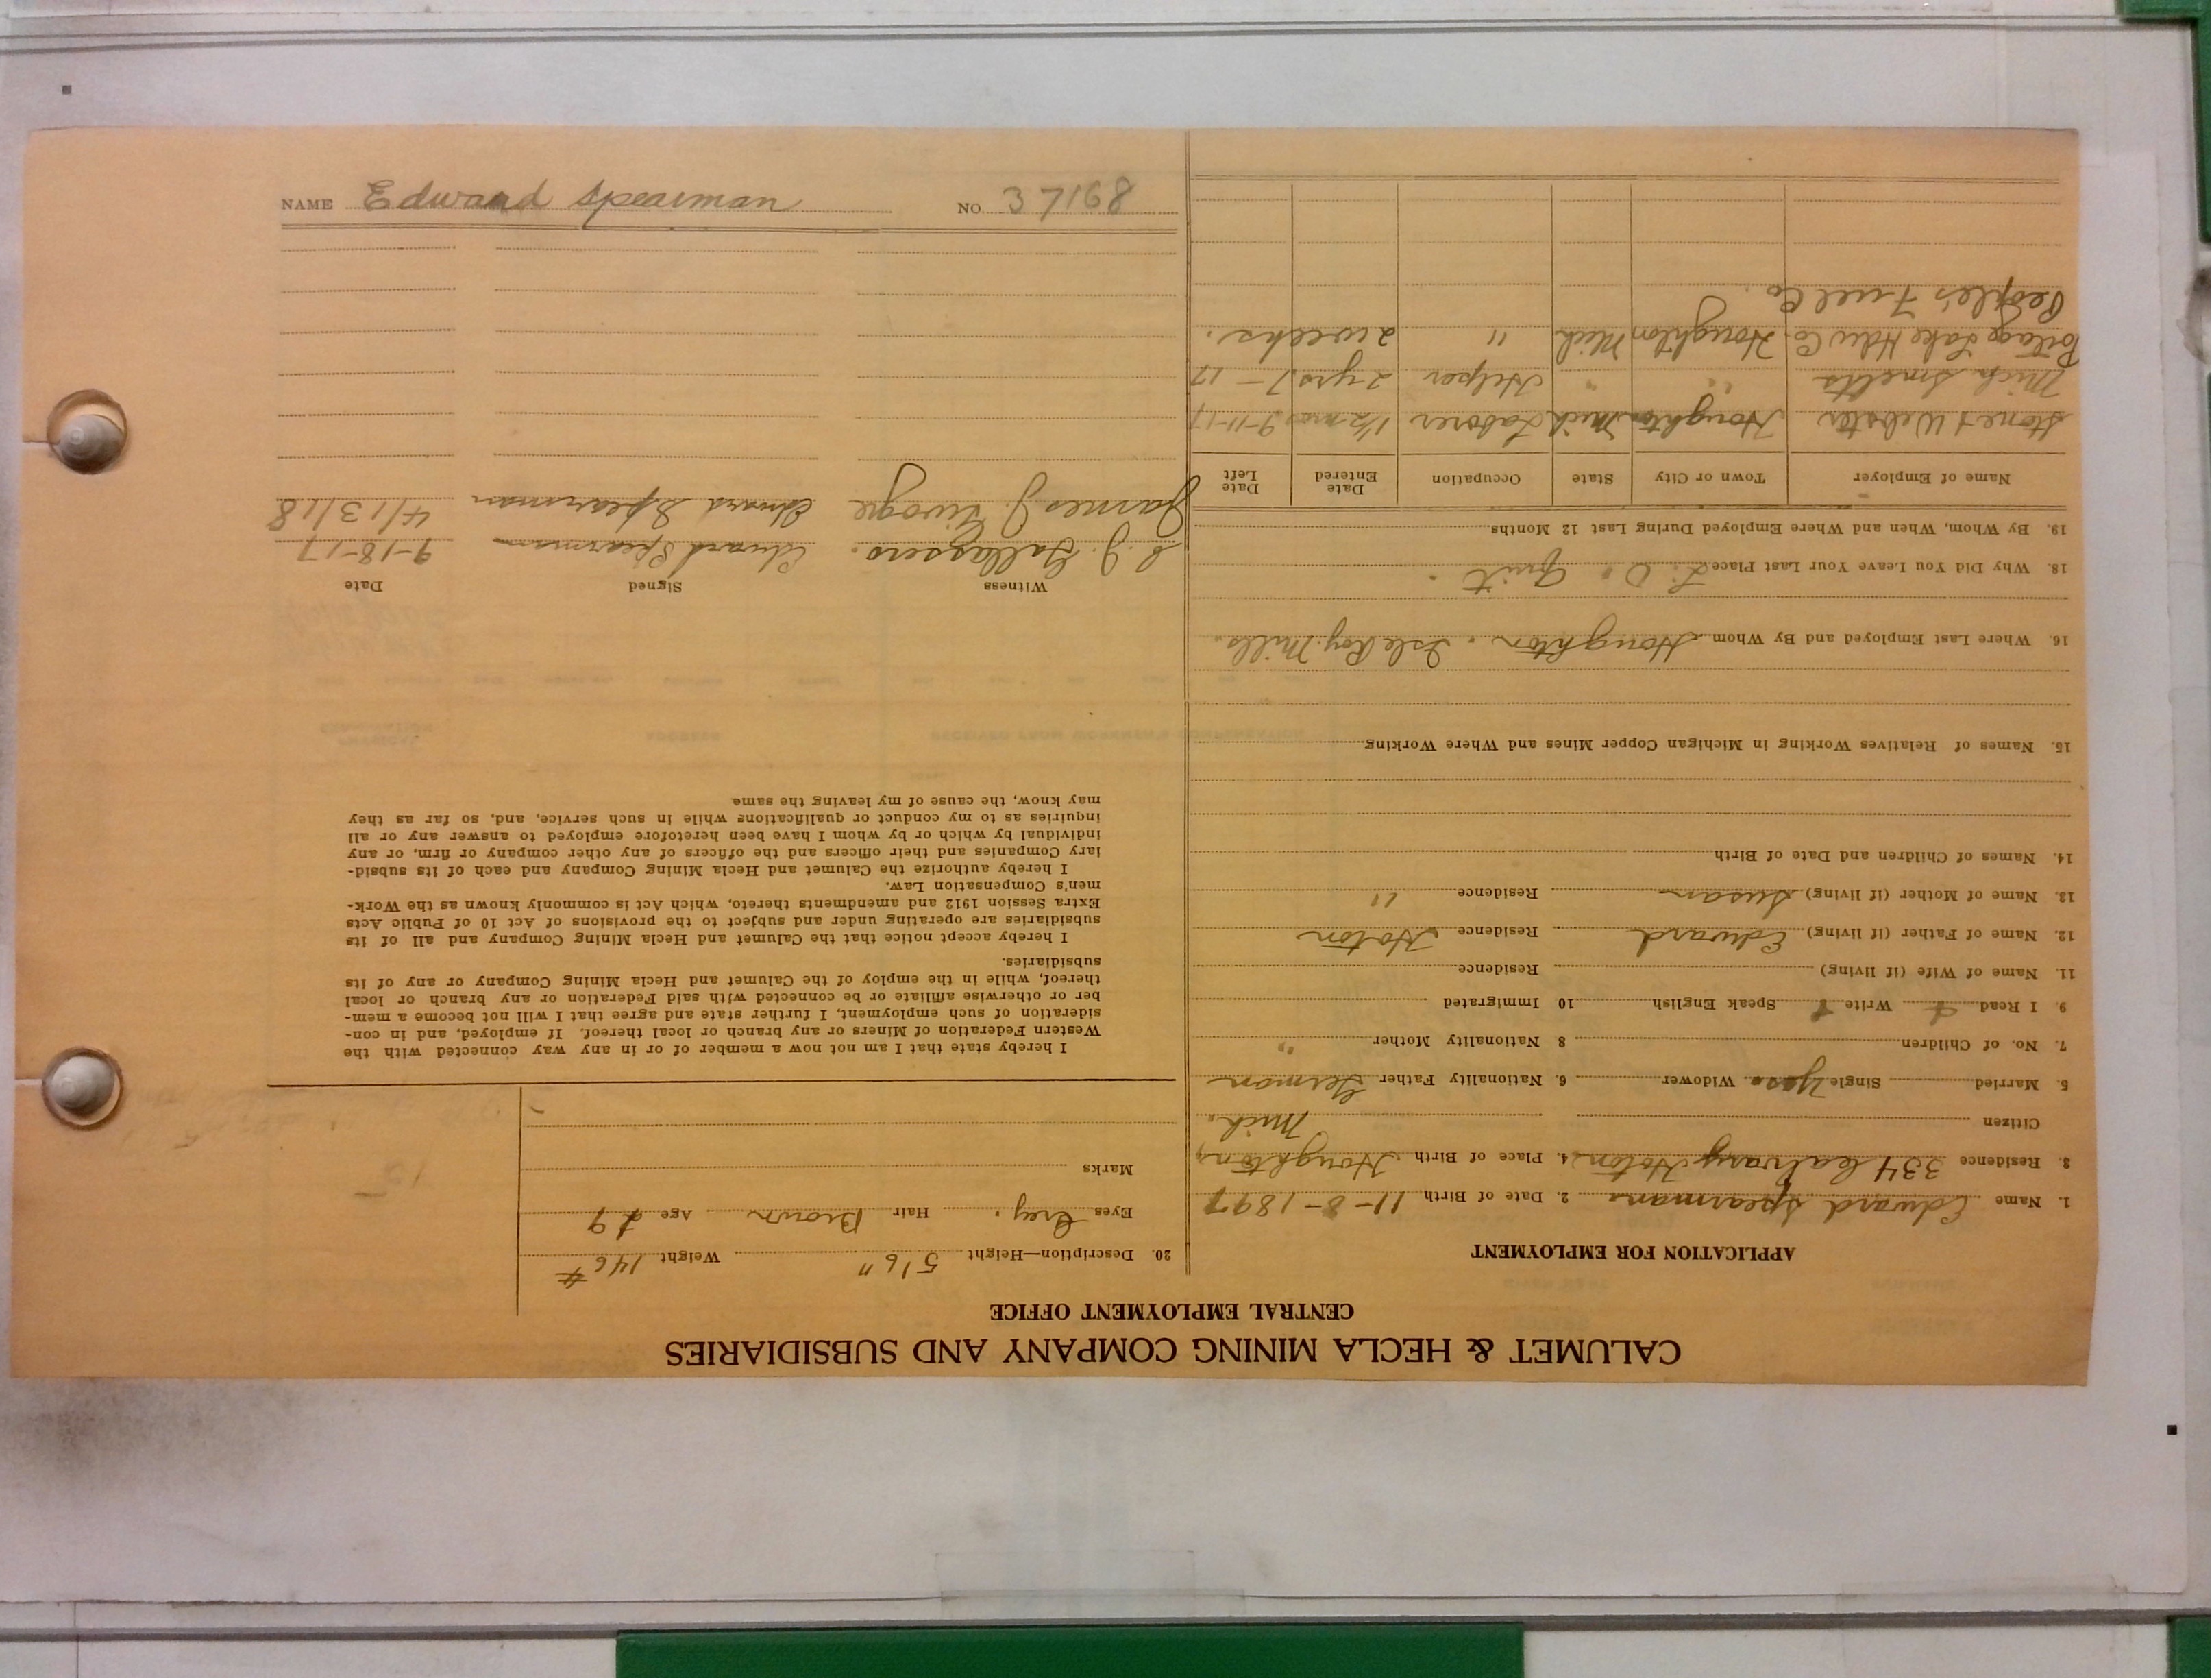 CALUMET & HECLA MINING COMPANY AND SUBSIDIARIES
CENTRAL EMPLOYMENT OFFICE
APPLICATION FOR EMPLOYMENT
1. Name Edward Spearman 2. Date of Birth 11-8-1897
3. Residence 334 Calvary Hoton 4. Place of Birth Houghton,
Citizen Mich.
5. Married Single Yes. Widower 6. Nationality Father German
7. No. of Children 8 Nationality Mother "
9. I Read Write Speak English 10 Immigrated
11. Name of Wife (if living) Residence
12. Name of Father (if living) Edward Residence Hoton
13. Name of Mother (if living) Susan Residence "
14. Names of Children and Date of Birth
15. Names of Relatives Working in Michigan Copper Mines and Where Working
16. Where Last Employed and By Whom Houghton. Isle Roy. Mills.
18. Why Did You Leave Your Last Place L. O. Quit.
19. By Whom, When and Where Employed During Last 12 Months
Name of Employer Town or City State Occupation Date Entered Date Left
Stone & Webster Houghton Mich Laborer 1½ mos 9-11-17
Mich Smelts " " Helper 2 yrs 7-17
Portage Lake Hdw Co. Houghton Mich " 2 weeks.
People's Fuel Co.
20. Description—Height 5'6" Weight 146#
Eyes Grey. Hair Brown Age 19
Marks
I hereby state that I am not now a member of or in any way connected with the
Western Federation of Miners or any branch or local thereof. If employed, and in con-
sideration of such employment, I further state and agree that I will not become a mem-
ber or otherwise affiliate or be connected with said Federation or any branch or local
thereof, while in the employ of the Calumet and Hecla Mining Company or any of its
subsidiaries.
I hereby accept notice that the Calumet and Hecla Mining Company and all of its
subsidiaries are operating under and subject to the provisions of Act 10 of Public Acts
Extra Session 1912 and amendments thereto, which Act is commonly known as the Work-
men's Compensation Law.
I hereby authorize the Calumet and Hecla Mining Company and each of its subsid-
iary Companies and their officers and the officers of any other company or firm, or any
individual by which or by whom I have been heretofore employed to answer any or all
inquiries as to my conduct or qualifications while in such service, and, so far as they
may know, the cause of my leaving the same
Witness Signed Date
Edward Spearman 9-18-17
James J. Edward Spearman 4/13/18
NAME Edward Spearman NO. 37168